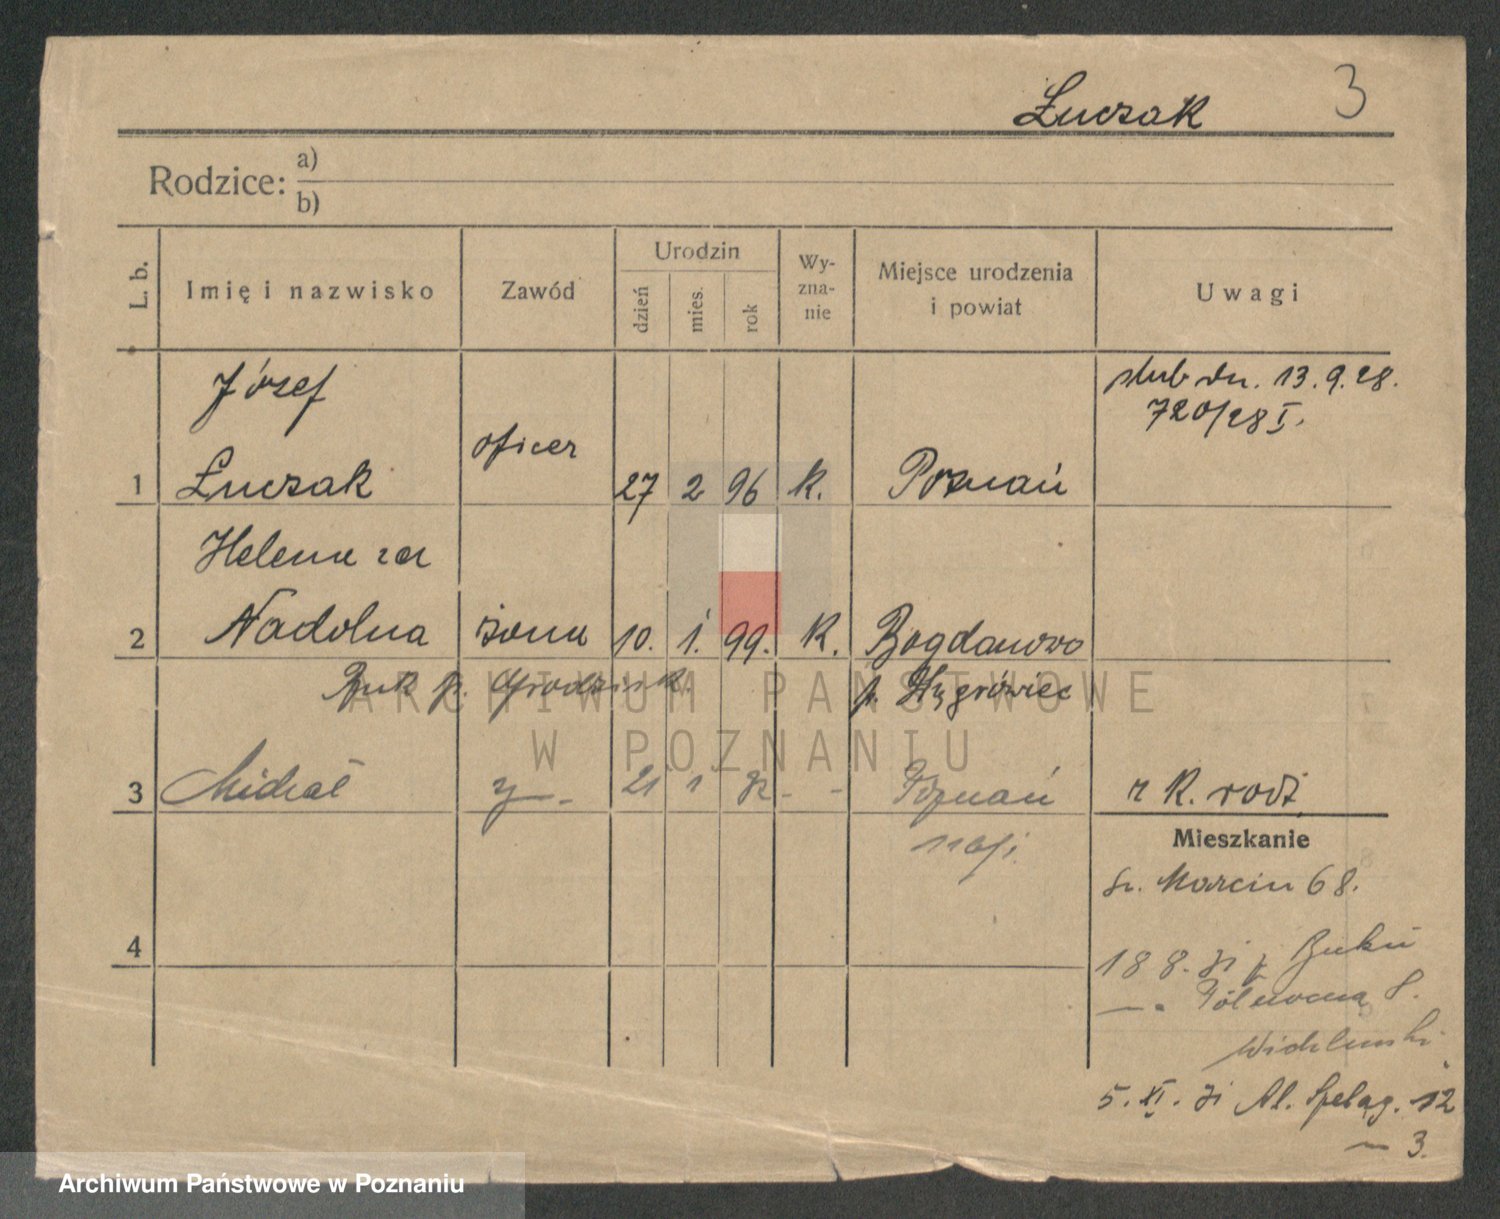 Łuczak 3
Rodzice: a)
b)
L. b. Imię i nazwisko Zawód Urodzin dzień mies. rok Wy-zna-nie Miejsce urodzenia i powiat Uwagi
Józef
ślub dn. 13.9.28.
720/28 I.
oficer
1 Łuczak 27 2 96 K. Poznań
Helena
2 Nadolna żona 10. 1. 99. K. Bogdanowo
Buk p. Grodzisk p. Wągrówiec
ARCHIWUM PAŃSTWOWE
W POZNANIU
3 Michał 21 1 Poznań r K. rodz.
Mieszkanie
św. Marcin 68.
4
18 8. 31 Buku
Północna 8.
5. XI. 31 Al. Szeląg. 12
— 3.
Archiwum Państwowe w Poznaniu